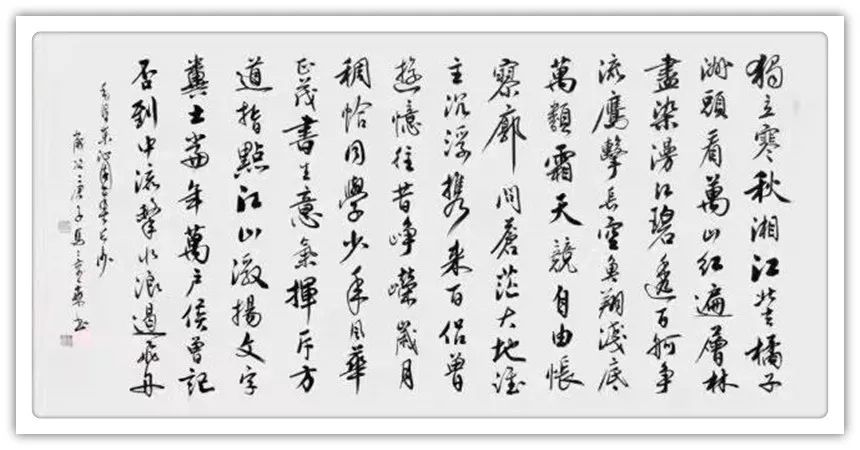 獨立寒秋湘江北去橘子
洲頭看萬山紅遍層林
盡染漫江碧透百舸爭
流鷹擊長空魚翔淺底
萬類霜天競自由悵
寥廓問蒼茫大地誰
主沉浮攜來百侶曾
遊憶往昔崢嶸歲月
稠恰同學少年風華
正茂書生意氣揮斥方
遒指點江山激揚文字
糞土當年萬戶侯曾記
否到中流擊水浪遏飛舟
毛澤東沁園春長沙
歲次庚子馬書